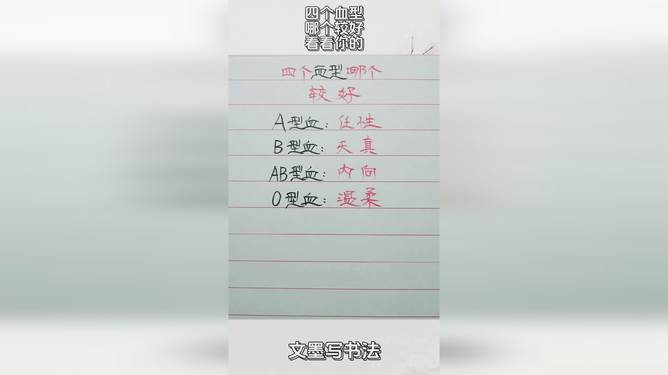 四个血型
哪个较好
看看你的
四个血型哪个
较好
A型血：任性
B型血：天真
AB型血：内向
O型血：温柔
文墨写书法